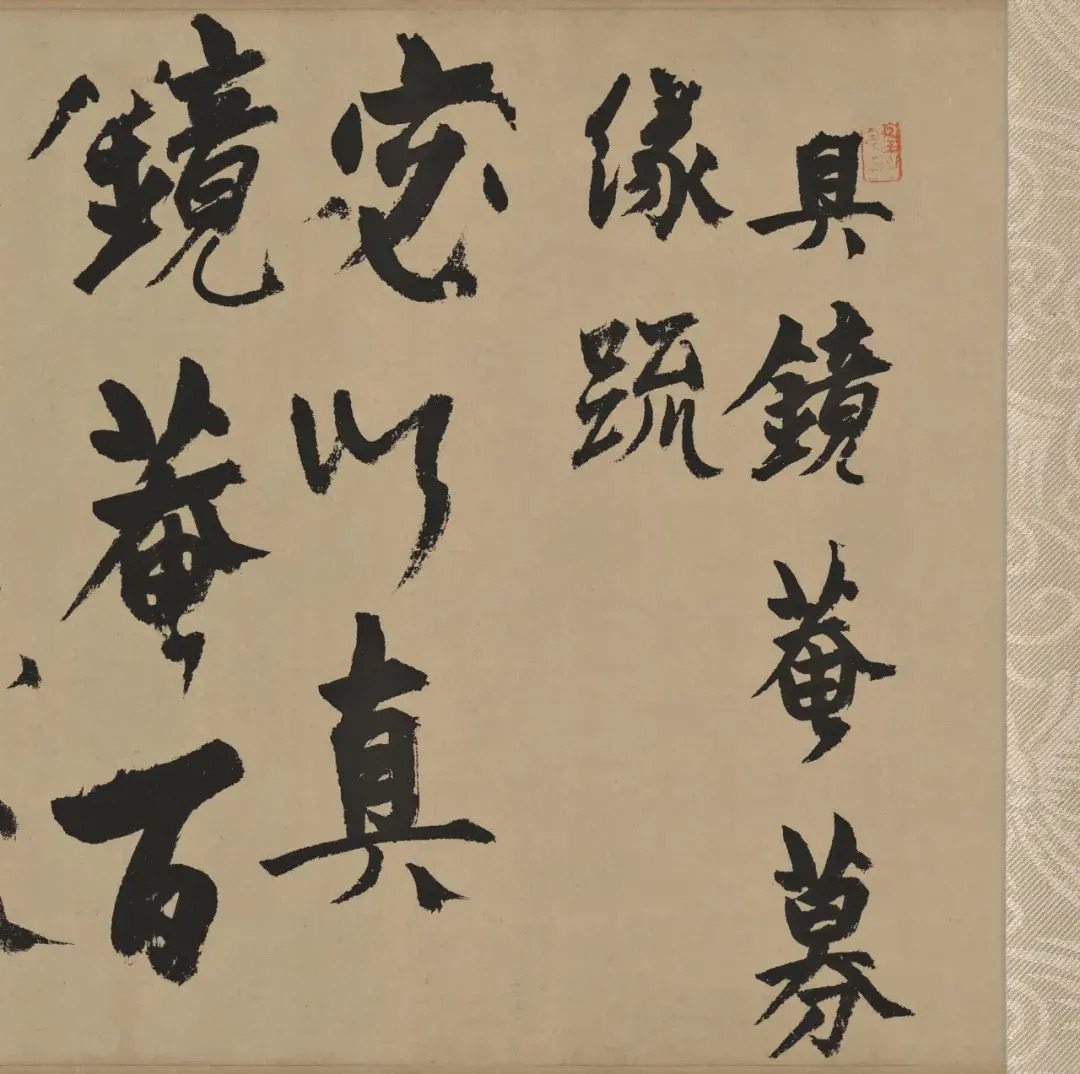 真鏡菴募
緣疏
窃以真
鏡菴百